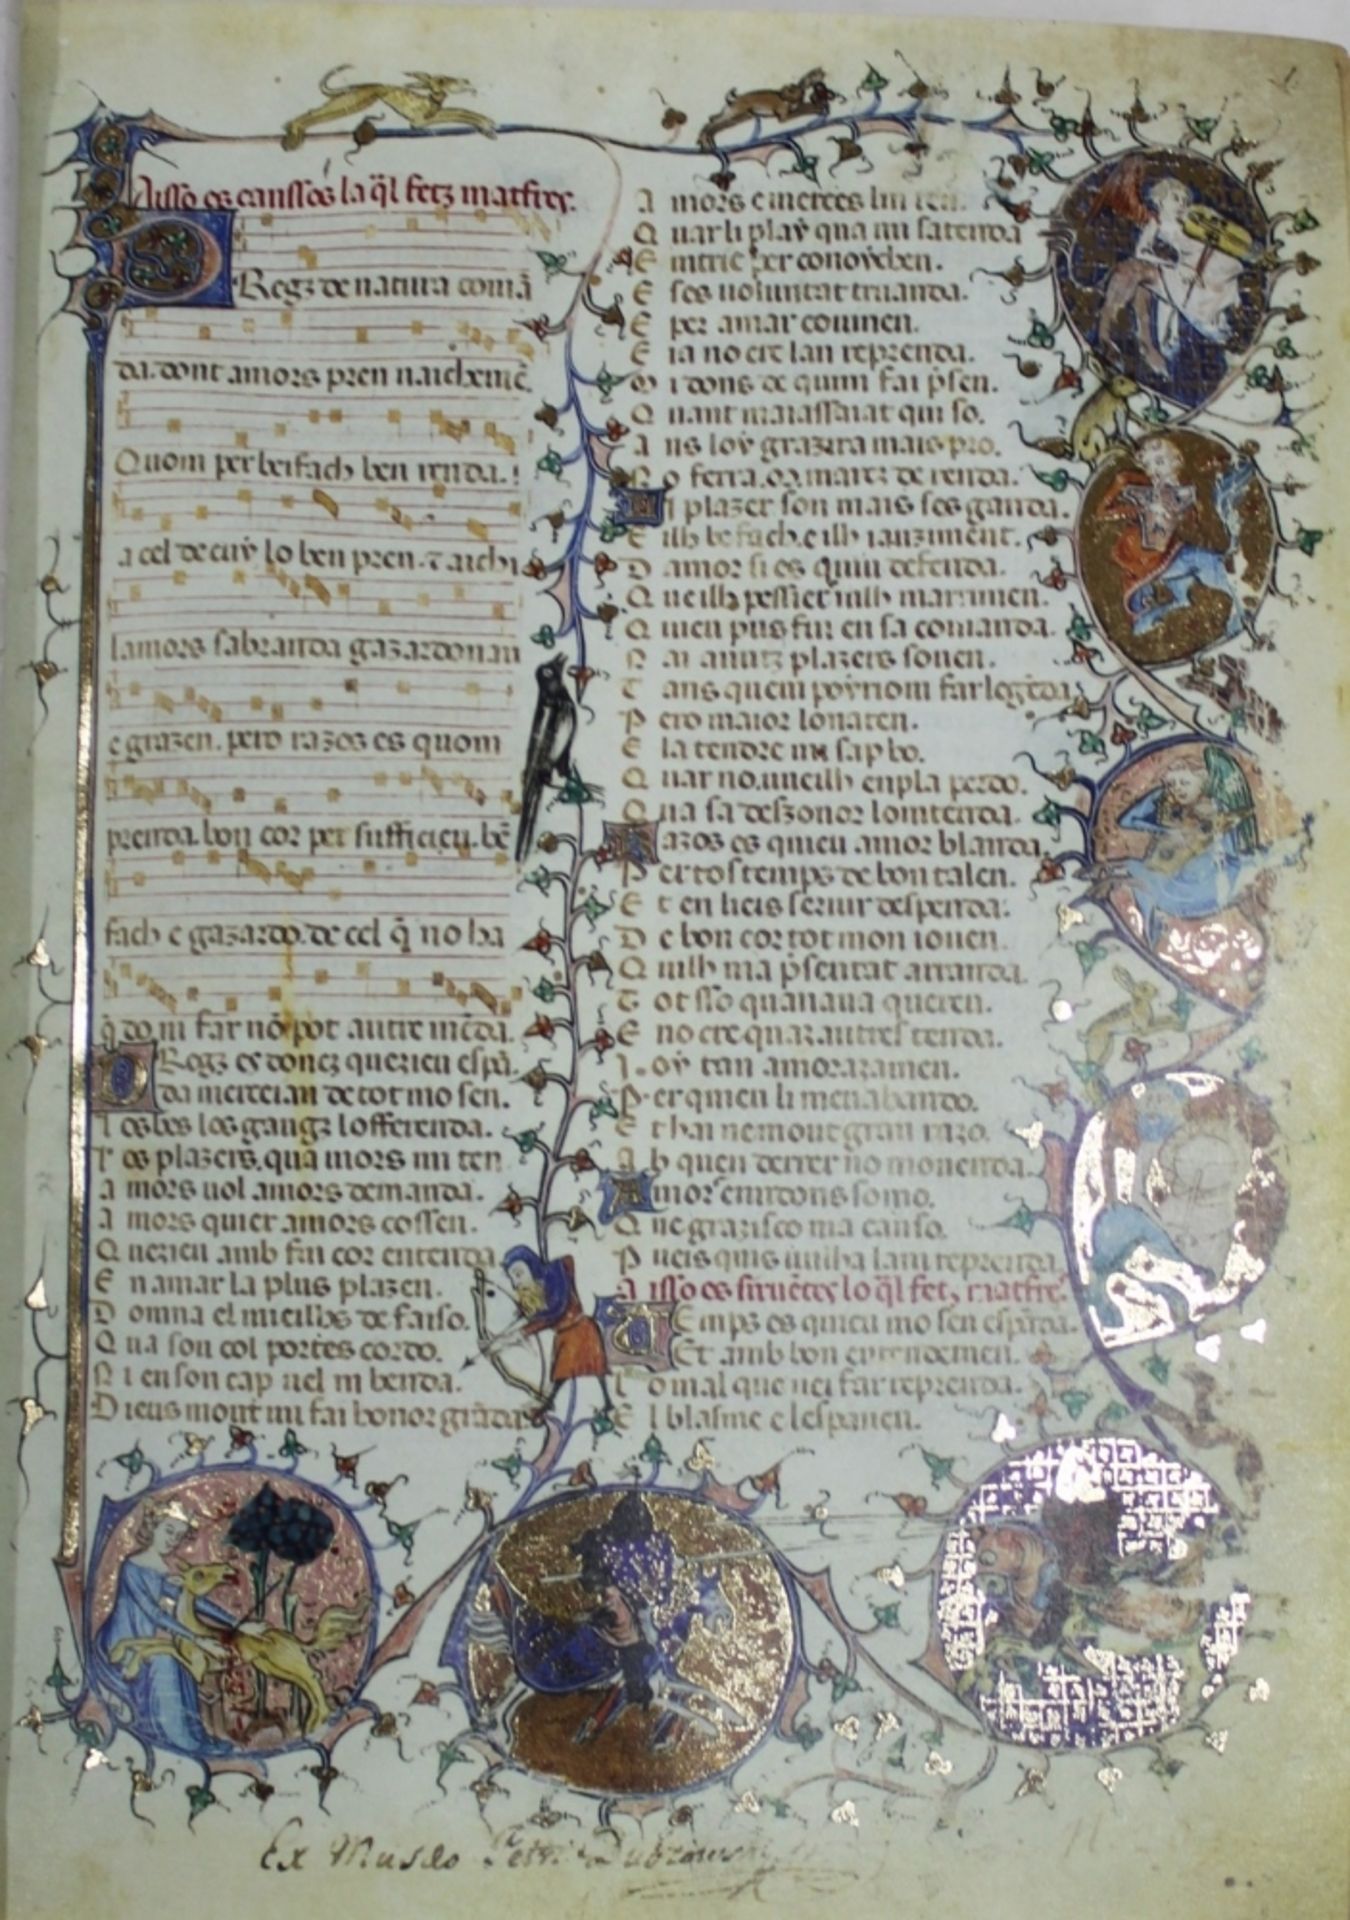 Aisso es canssos la q̃l fetz matfres.
Regz de natura comã
da. dont amors pren naichemẽ.
Quom per beifach ben renda.
a cel de cuy lo ben pren. τ aichi
lamors sabranda gazardonan
e grazen. pero razos es quom
prenda. bon cor per sufficien. bẽ
fach e gazardo. de cel q̃ no ha
q̃ do. ni far nõ pot autre mẽda.
Regz es doncz querieu
da de tot mo sen.
os bes los gaugz lofferenda.
os plazers. qua mors mi ten
a mors uol amors demanda.
a mors quier amors cossen.
Q uerieu amb fin cor entenda
E n amar la plus plazen.
D omna el mieilhs de faiso.
Q ua son col portes cordo.
N i en son cap uel ni benda.
D ieus mout mi fai honor grãda
A mors e merces
Q uar li play qua mi satenda
E per conoychen.
E ses uoluntat truanda.
E per amar couinen.
E ia no cre lan reprenda.
M i dons de quim fai p̃sen.
Q uant qui so.
A ns loy grazira mais pro.
N o ferra. o. martz de renda.
plazer son mais ses ganda.
E ilh be fach. e ilh iauziment.
D amor si es quim defenda.
Q ueilh
Q uieu pus fui en sa comanda.
N ai auutz plazers souen.
T ans quem poyriom far legẽda
P ero maior lonaten.
E la tendre mi sap bo.
Q uar no. uueilh enpla perdo.
Q ua sa deszonor lomtenda.
azos es quieu amor blanda.
P er tos temps de bon talen.
E t en lieis seruir despenda.
D e bon cor tot mon iouen.
Q uilh ma p̃sentat arranda.
T ot sso quanaua queren.
E no cre quar autres tenda.
I. oy tan amorazamen.
P. er quieu li men abando.
E t hai ne mout gran razo.
A b quen derrer no
A mor emidons somo.
Q ue grazisco ma canso.
P ueis quis uuilha lam reprenda.
A isso es siruẽtes lo q̃l fetz matfre
T emps es quieu mo sen espãda.
Et amb bon entendemen.
L o mal que uei far reprenda.
E l blasme e lespauen.
Ex Museo Petri Dubrowsky